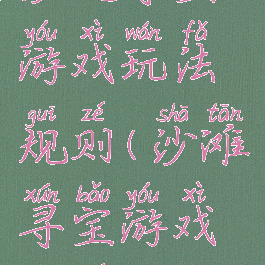 yóu xì wán fǎ
游戏玩法
guī zé ( shā tān
规则(沙滩
xún bǎo yóu xì
寻宝游戏